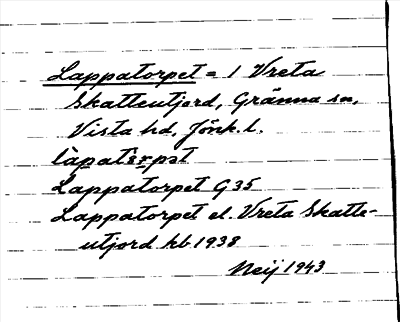 Lappatorpet = 1 Vreta
Skatteutjord, Gränna sn,
Vista hd, Jönk. l.
làpatʹɛrpət
Lappatorpet G35
Lappatorpet el. Vreta Skatte-
utjord kb 1938
Neij 1943